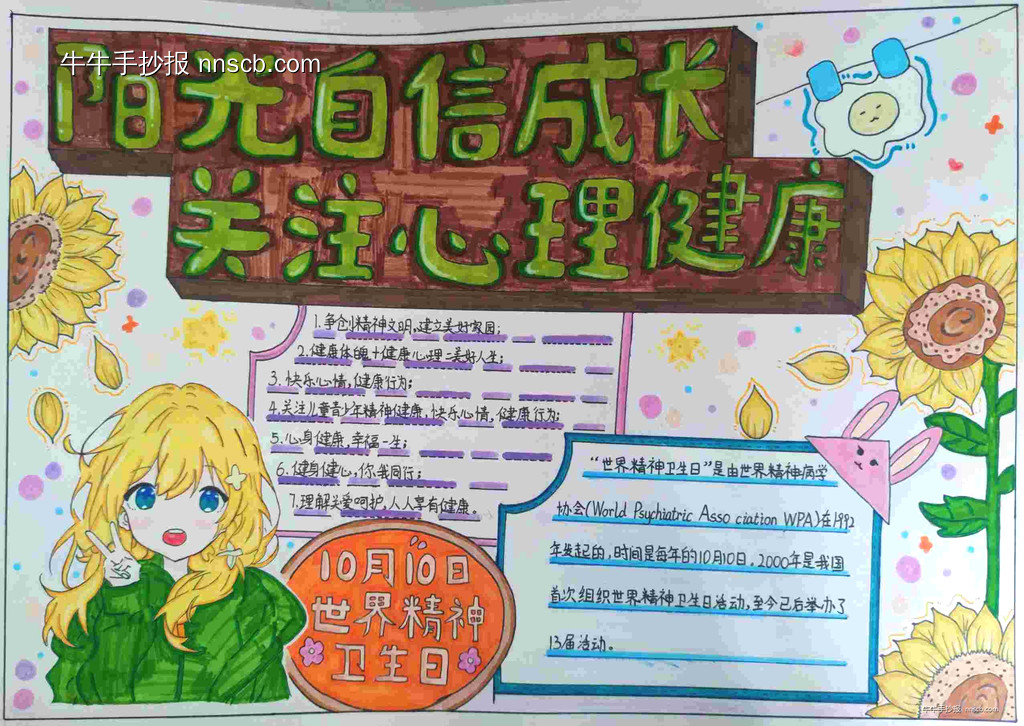 牛牛手抄报 nnscb.com
阳光自信成长
关注心理健康
1.争创精神文明,建立美好家园;
2.健康体魄+健康心理=美好人生;
3.快乐心情,健康行为;
4.关注儿童青少年精神健康,快乐心情,健康行为;
5.心身健康,幸福一生;
6.健身健心,你我同行;
7.理解关爱呵护,人人享有健康。
“世界精神卫生日”是由世界精神病学
协会(World Psychiatric Asso ciation WPA)在1992
年发起的,时间是每年的10月10日,2000年是我国
首次组织世界精神卫生日活动,至今已后举办了
13届活动。
10月“10日
世界精神
卫生日
牛牛手抄报 nnscb.com